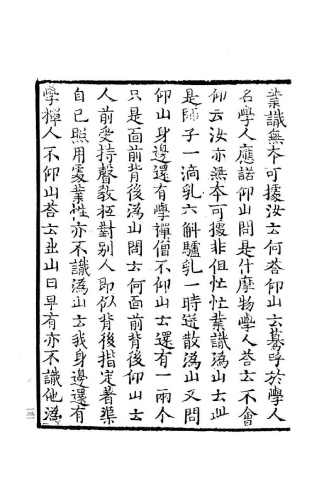 業識無本可據汝云何荅仰山云驀呼於學人
名學人應諾仰山問是什摩物學人荅云不會
仰云汝亦無本可據非但忙忙業識溈山云此
是師子一滴乳六斛驢乳一時迸散溈山又問
仰山身邊還有學禪僧不仰山云還有一兩个
只是面前背後溈山問云何面前背後仰山云
人前受持聲教柩對別人即似背後指定著渠
自己照用處業性亦不識溈山云我身邊還有
學禪人不仰山荅云出山日早有亦不識他溈